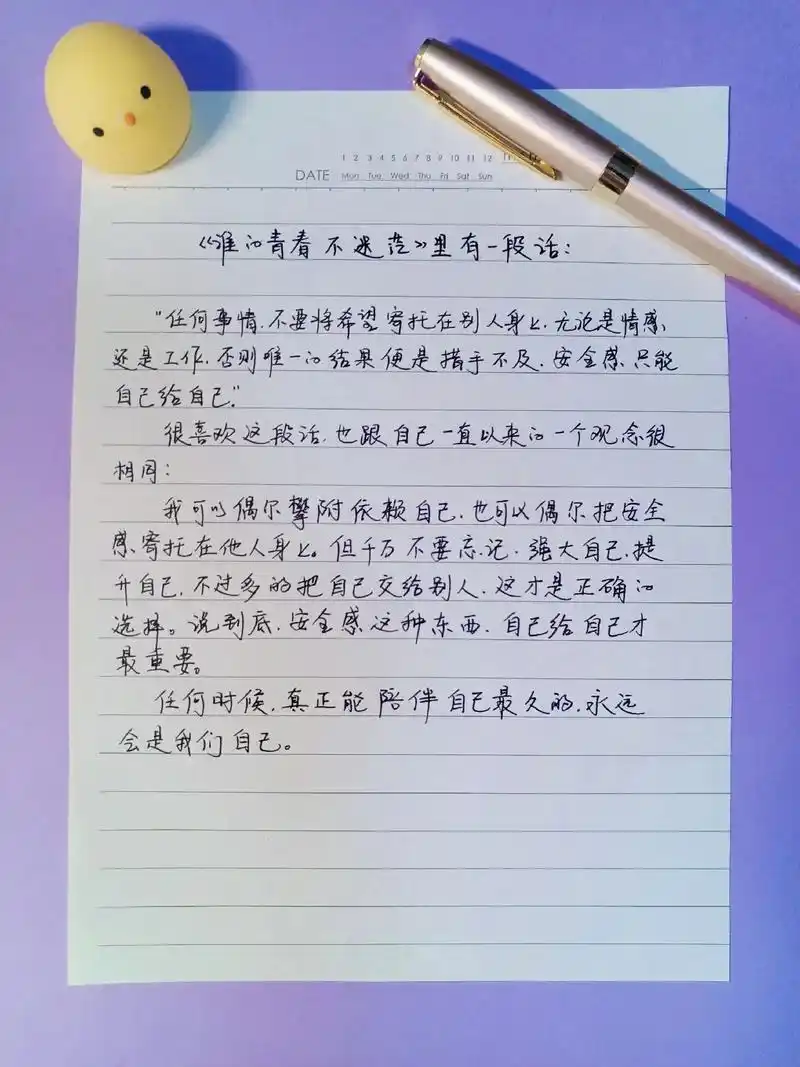 1 2 3 4 5 6 7 8 9 10 11 12
DATE Mon Tue Wed Thu Fri Sat Sun
《谁的青春不迷茫》里有一段话:
"任何事情,不要将希望寄托在别人身上,无论是情感
还是工作,否则唯一的结果便是措手不及,安全感只能
自己给自己."
很喜欢这段话,也跟自己一直以来的一个观念很
相同:
我可以偶尔攀附依赖自己,也可以偶尔把安全
感寄托在他人身上。但千万不要忘记,强大自己,提
升自己,不过多的把自己交给别人,这才是正确的
选择。说到底,安全感这种东西,自己给自己才
最重要。
任何时候,真正能陪伴自己最久的,永远
会是我们自己。